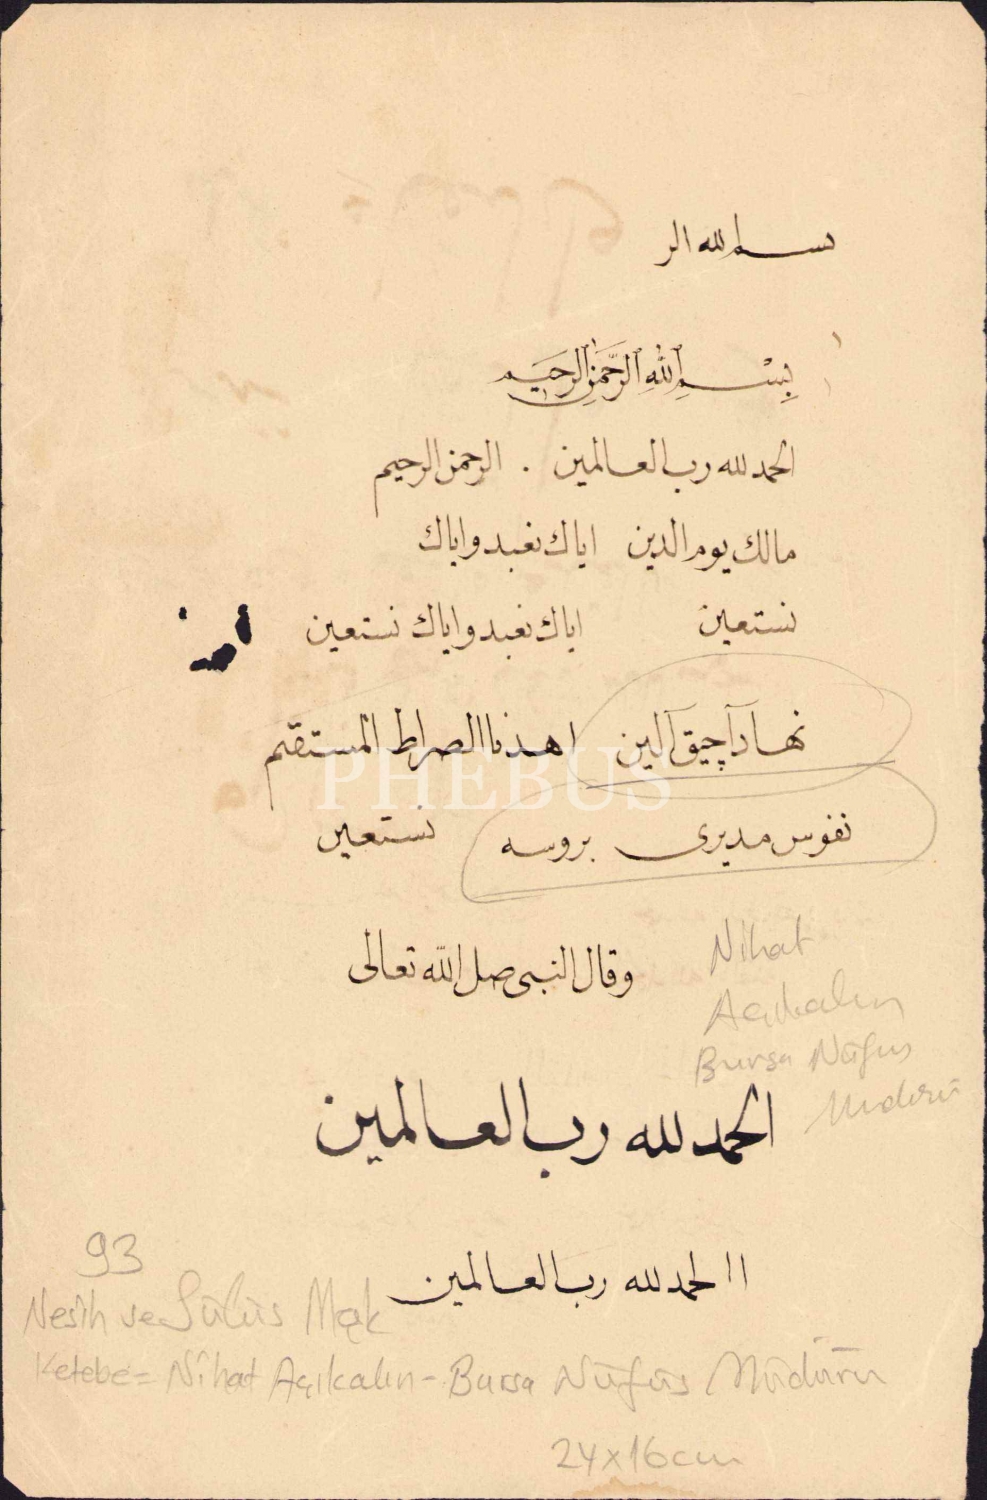 بسم لله الر
بِسْمِ اللهِ الرَّحْمٰنِ الرَّحِيمِ
الحمد لله رب العالمين . الرحمن الرحيم
مالك يوم الدين اياك نعبد واياك
نستعين اياك نعبد واياك نستعين
نهاد آچيق آلين اهدنا الصراط المستقيم
PHEBUS
نفوس مديرى بروسه نستعين
وقال النبى صل الله تعالى
Nihat
Açıkalın
Bursa Nüfus
Müdürü
الحمد لله رب العالمين
اا لحمد لله رب العالمين
93
Nesih ve Sülüs Meşk
Ketebe= Nihat Açıkalın - Bursa Nüfus Müdürü
24x16cm